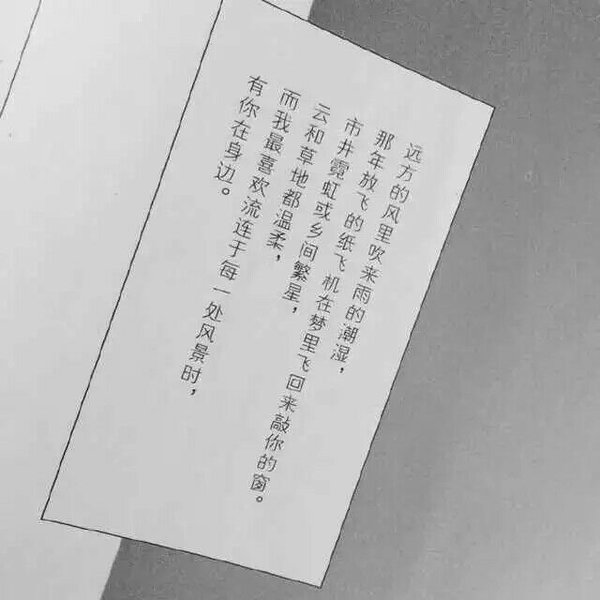 远方的风里吹来雨的潮湿，
那年放飞的纸飞机在梦里飞回来敲你的窗。
市井霓虹或乡间繁星，
云和草地都温柔，
而我最喜欢流连于每一处风景时，
有你在身边。